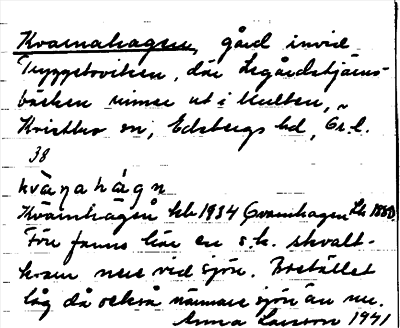 Kvarnahagen, gård invid
Tryggeboviken, där Legårdstjärns-
bäcken rinner ut i Multen,
Kvistbro sn, Edsbergs hd, Ör. l.
38
kvàṇahágn
Kvarnhagen hb 1934 Qvarnhagen Lk 1880.
Förr fanns här en s.k. skvalt-
kvarn nere vid sjön. Bostället
låg då också närmare sjön än nu.
Anna Larsson 1941